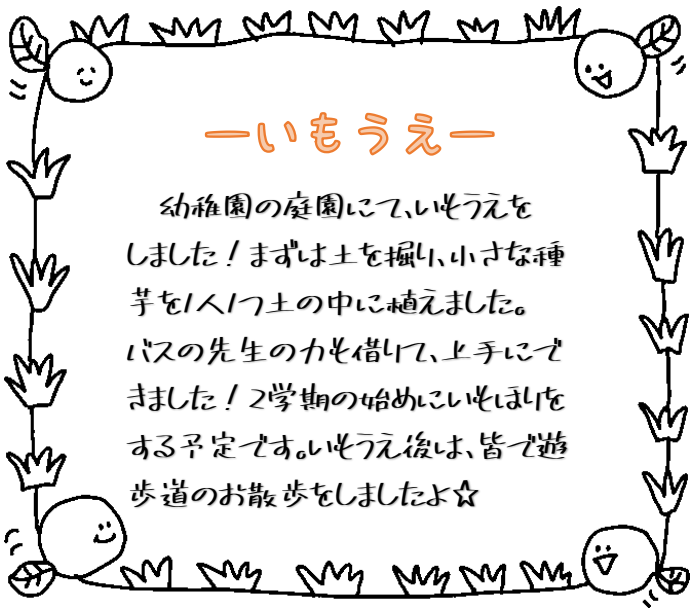 ーいもうえー
幼稚園の庭園にて、いもうえを
しました！まずは土を掘り、小さな種
芋を1人1つ土の中に植えました。
バスの先生の力も借りて、上手にで
きました！2学期の始めにいもほりを
する予定です。いもうえ後は、皆で遊
歩道のお散歩をしましたよ☆